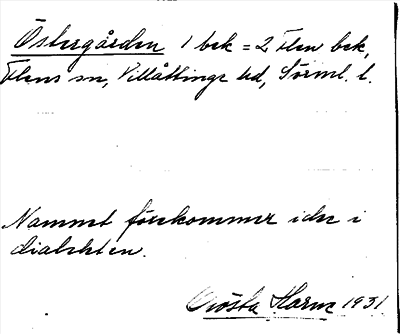 Östergården 1 bek = 2 Flen bek,
Flens sn, Villåttinge hd, Sörml. l.
Namnet förekommer icke i
dialekten.
Gösta 1931